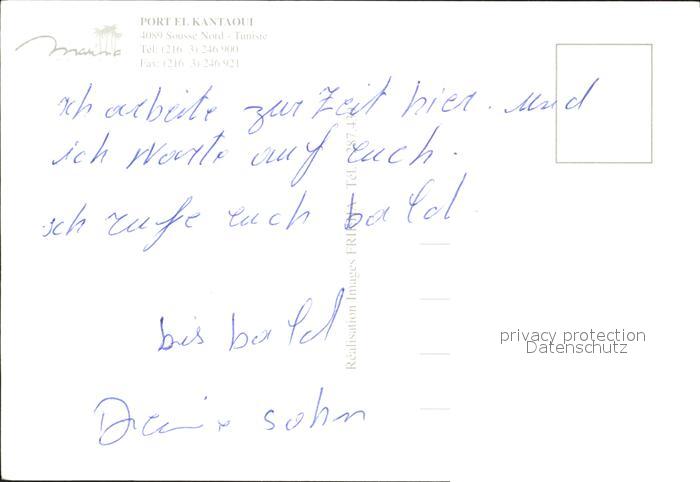 PORT EL KANTAOUI
4089 Sousse Nord - Tunisie
Tél: (216 3) 246 900
Fax: (216 3) 246 921
marina
ich arbeite zur Zeit hier. und
ich warte auf euch.
ich rufe euch bald.
bis bald
sohn
Réalisation Images
Tél.
privacy protection
Datenschutz